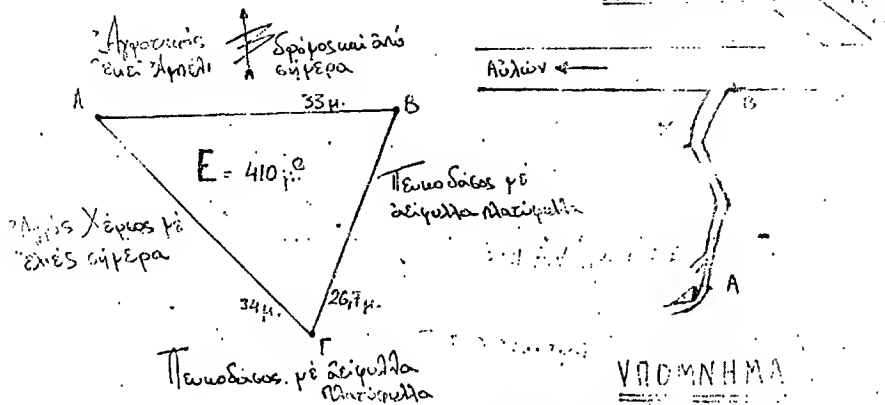 Ἀγροτικός δρόμος καὶ ἀπό
ἐκεῖ Ἀμπέλι σήμερα
Α 33μ. Β
Ε = 410 μ²
Πευκοδάσος μέ
ἀείφυλλα πλατύφυλλα
Ἀγρός Χέρσος μέ
ἐλιές σήμερα
34μ. 26,7μ.
Γ
Πευκοδάσος μέ ἀείφυλλα
πλατύφυλλα
Αὐλών
Β
Α
ΥΠΟΜΝΗΜΑ